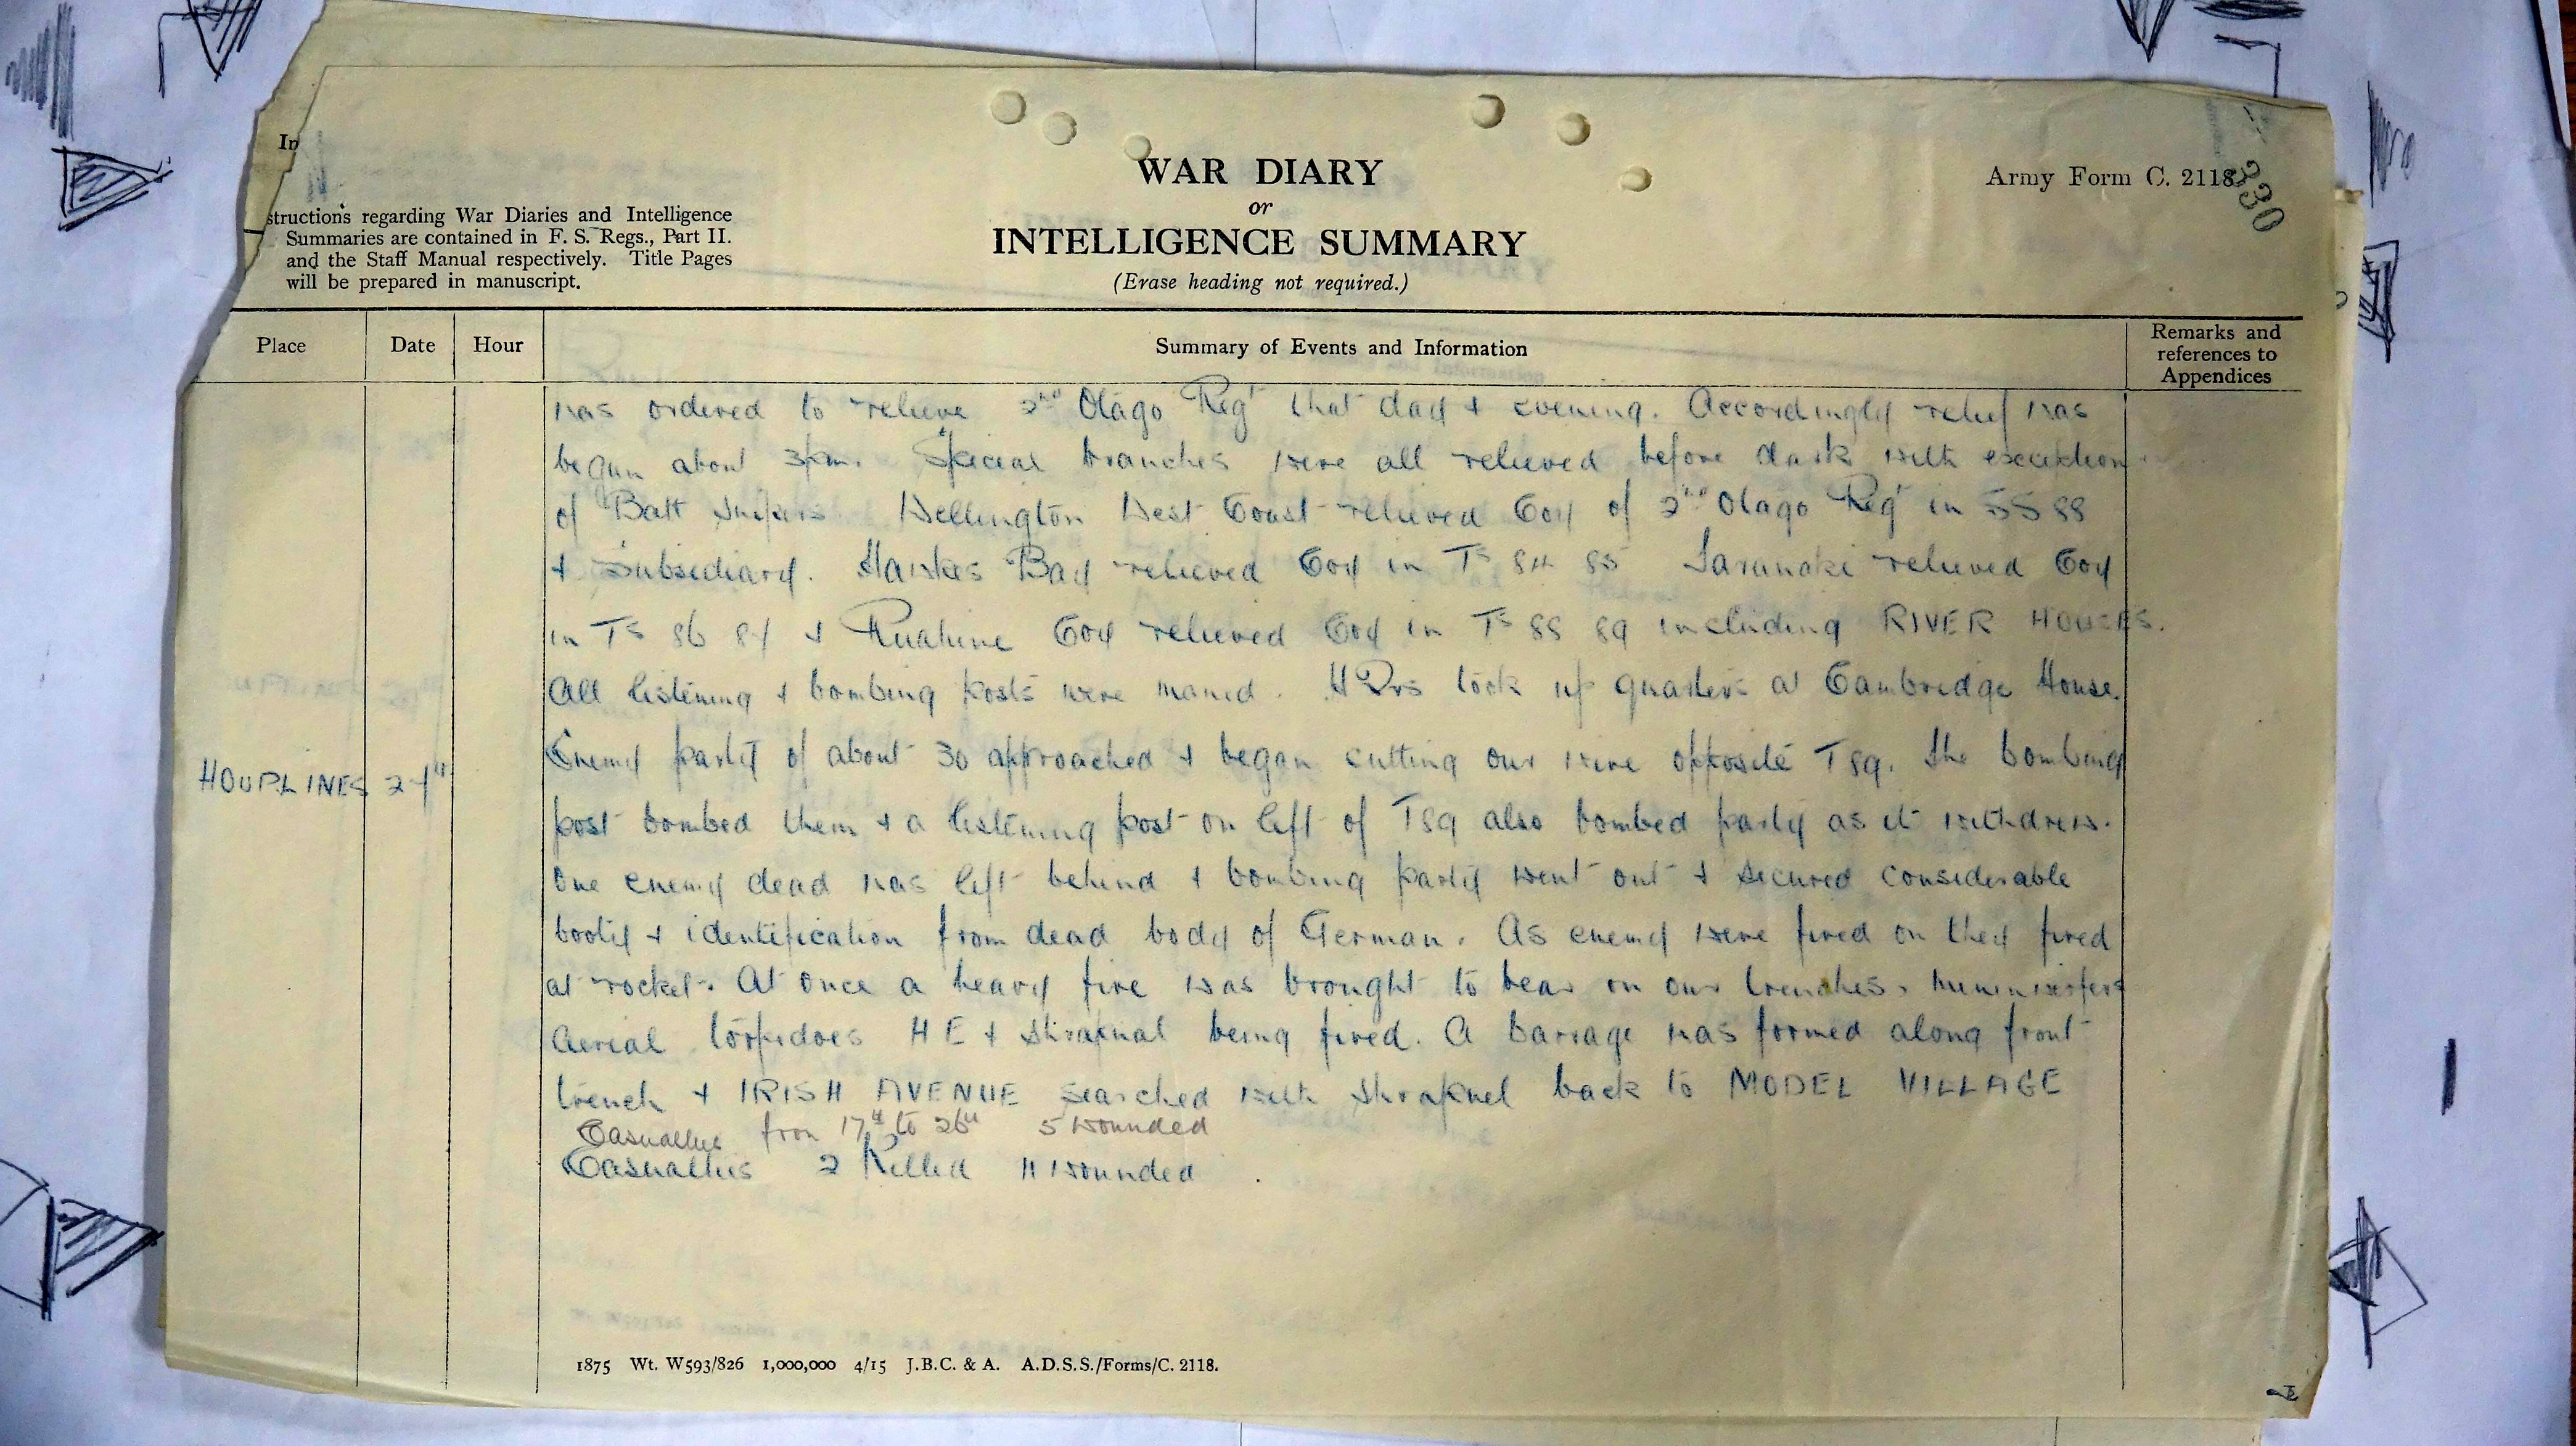 In
structions regarding War Diaries and Intelligence
Summaries are contained in F. S. Regs., Part II.
and the Staff Manual respectively. Title Pages
will be prepared in manuscript.
WAR DIARY
or
INTELLIGENCE SUMMARY
(Erase heading not required.)
Army Form C. 2118
330
Place
Date
Hour
Summary of Events and Information
Remarks and
references to
Appendices
was ordered to relieve 2nd Otago Regt that day & evening. Accordingly relief was
began about 3pm. Special branches were all relieved before dark with exception
of Batt Snipers Wellington West Coast relieved Coy of 2nd Otago Regt in SS 88
& Subsidiary. Hawkes Bay relieved Coy in Ts 84 85 Taranaki relieved Coy
in Ts 86 87 & Ruahine Coy relieved Coy in Ts 88 89 including RIVER HOUSES.
All listening & bombing posts were maned. HQrs took up quarters at Cambridge House.
HOUPLINES 27th
Enemy party of about 30 approached & began cutting our wire opposite T89. The bombing
post bombed them & a listening post on left of T89 also bombed party as it withdrew.
One enemy dead was left behind & bombing party went out & secured considerable
booty & identification from dead body of German. As enemy were fired on they fired
at rocket. At once a heavy fire was brought to bear on our trenches, minnewerfers
Aerial torpedoes H E & Shrapnal being fired. A barrage was formed along front
trench & IRISH AVENUE searched with shrapnel back to MODEL VILLAGE
Casualties from 17th to 26th 5 wounded
Casualties 2 Killed 11 wounded
1875 Wt. W593/826 1,000,000 4/15 J.B.C. & A. A.D.S.S./Forms/C. 2118.